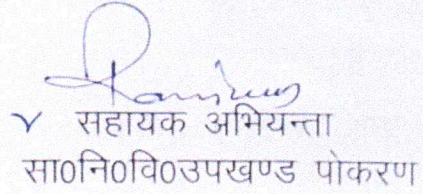 सहायक अभियन्ता
सा0नि0वि0उपखण्ड पोकरण